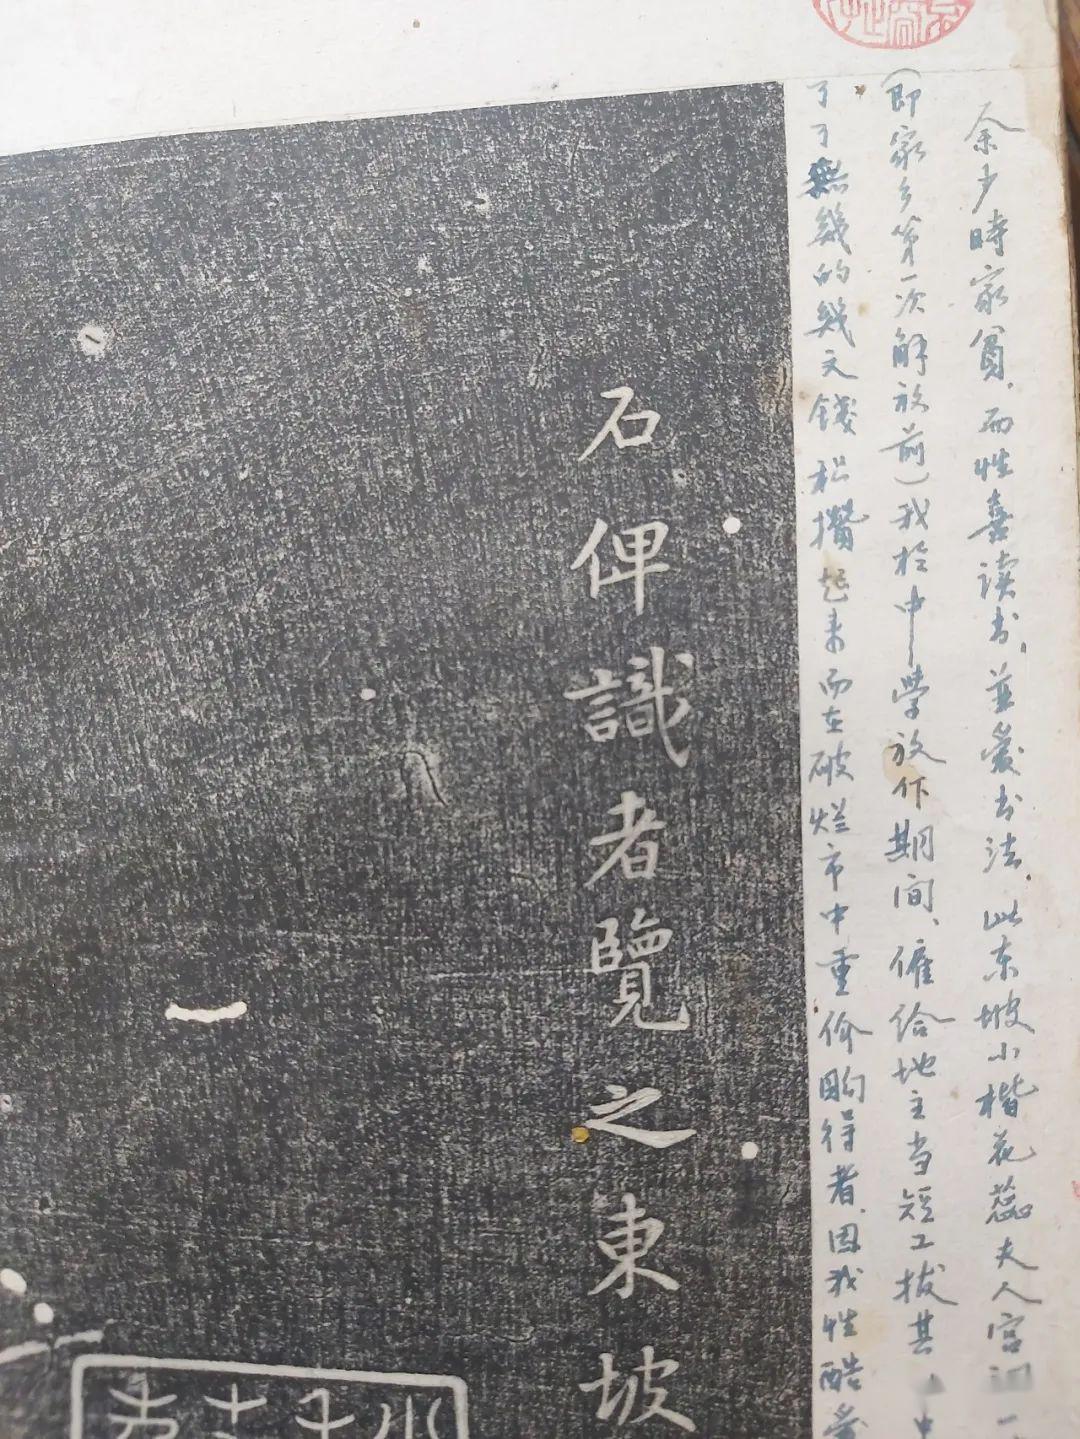 余少時家貧，而性喜读书，並爱书法，此东坡小楷花蕊夫人宫词一
（即家乡第一次解放前）我於中學放假期間、僱给地主当短工拔其
了了無幾的幾文錢积攢起来而在破烂市中重价购得者，因我性酷爱
石俾識者覽之東坡